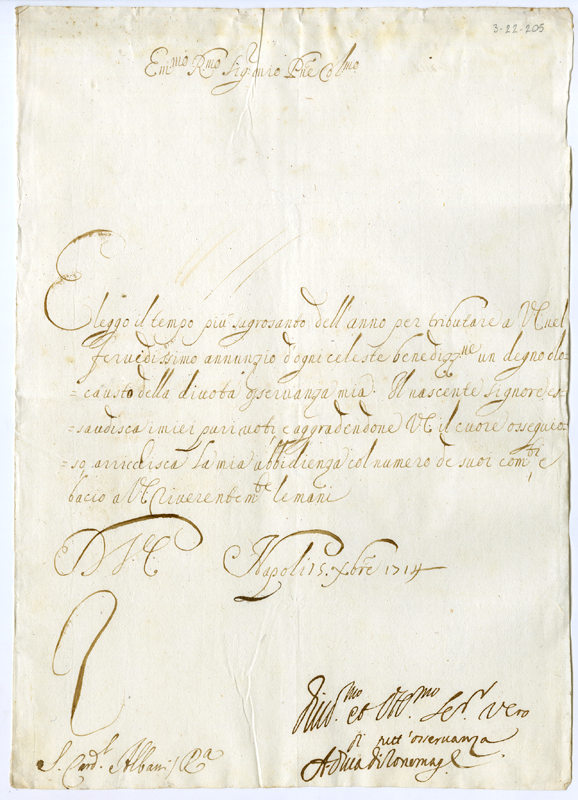 3·22·205
Em.mo Rmo Sig.r mio P.ne Col.mo
Eleggo il tempo più sagrosanto dell'anno per tributare a VE nel
fervidissimo annunzio d'ogni celeste benediz.ne un degno olo-
=causto della divota osservanza mia. Il nascente Signore es-
=saudisca i miei puri voti e aggradendone VE il cuore ossequio-
=so arricchisca la mia ubbidienza col numero de suoi com.di, e
bacio a VE riverentem.te le mani
D. V. E. Napoli 15. Xbre 1714
Div.mo et Obl.mo Ser.r vero
di tutt'osservanza
S. Card.l Albani